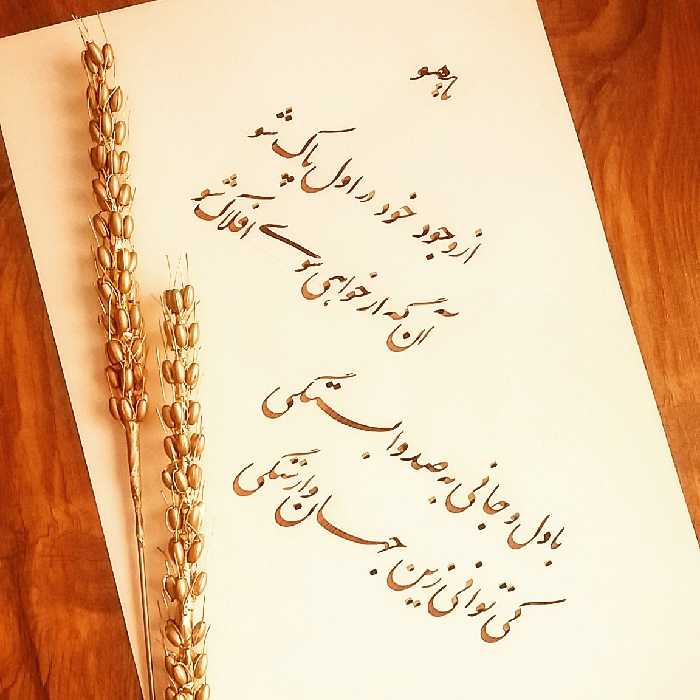 یا هو
از وجود خود در اول پاک شو
آن گه ار خواهی سوی افلاک شو
با دل و جانی به صد وابستگی
کی توانی زین جهان وارستگی